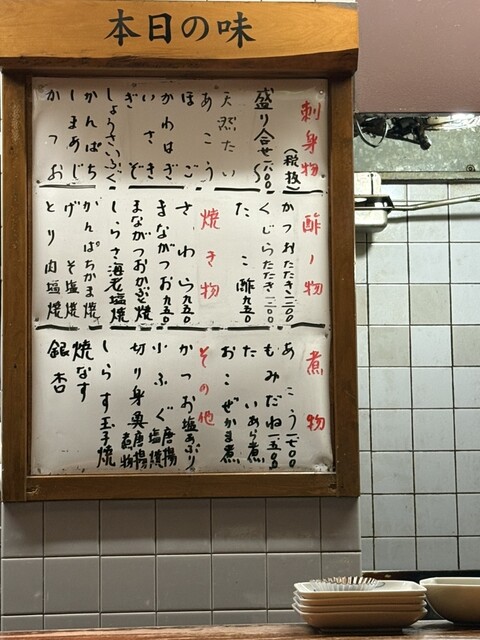 本日の味
刺身物
(税抜)
盛り合せ一六〇〇〜
天然たい
あこう
ほご
かわはぎ
いさき
ぎぞ
しょうさいふぐ
かんぱち
しまあじ
かつお
酢ノ物
かつおたたき一二〇〇
くじらたたき一二〇〇
たこ酢九五〇
焼き物
さわら九五〇
まながつお九五〇
まながつおかど焼
しらさ海老塩焼
かんぱちかま焼
げそ塩焼
とり肉塩焼
煮物
あこう一七〇〇
もみだね一五〇〇
たいあら煮
おこぜかま煮
その他
かつお塩あぶり
小ふぐ唐揚塩焼
切り身奥唐揚煮物
しらす玉子焼
焼なす
銀杏